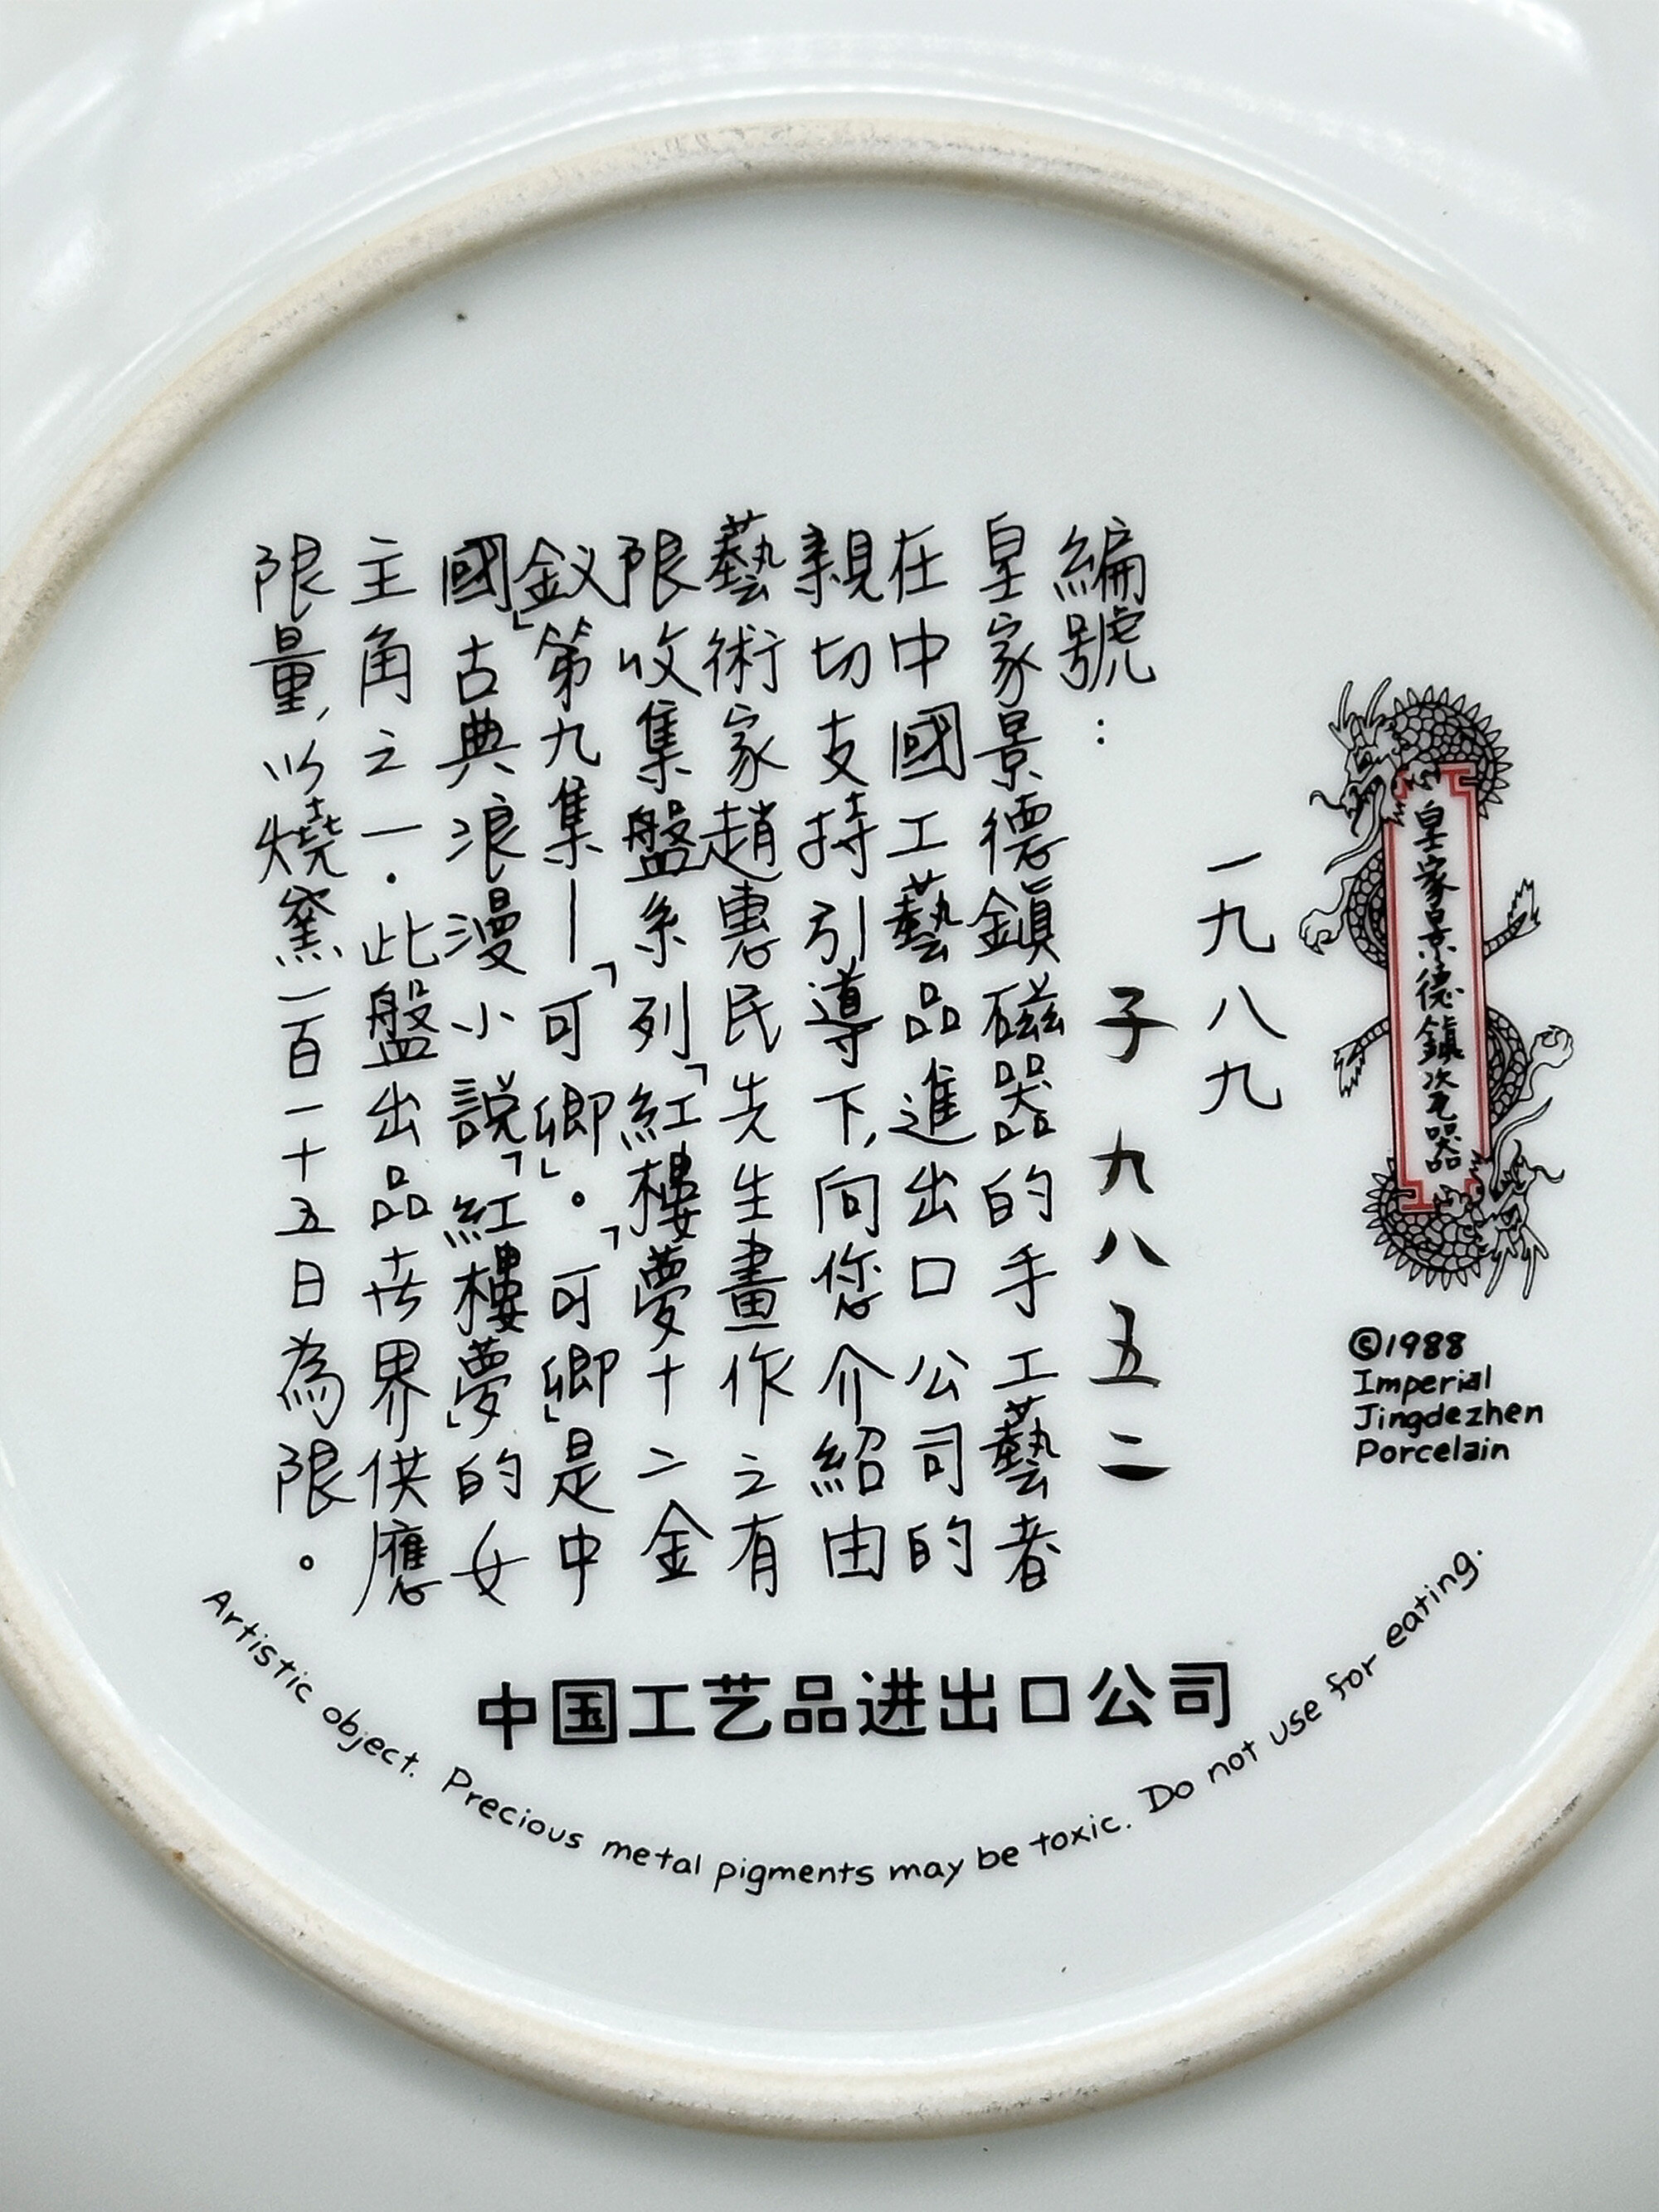 皇家景德鎮瓷器
©1988
Imperial
Jingdezhen
Porcelain
一九八九
編號：子九八五二
皇家景德鎮磁器的手工藝者
在中國工藝品進出口公司的
親切支持引導下,向您介紹由
藝術家趙惠民先生畫作之有
限收集盤系列「紅樓夢十二金
釵」第九集—「可卿」。「可卿」是中
國古典浪漫小說「紅樓夢」的女
主角之一.此盤出品卋界供應
限量,以燒窯一百一十五日為限。
中国工艺品进出口公司
Artistic object. Precious metal pigments may be toxic. Do not use for eating.